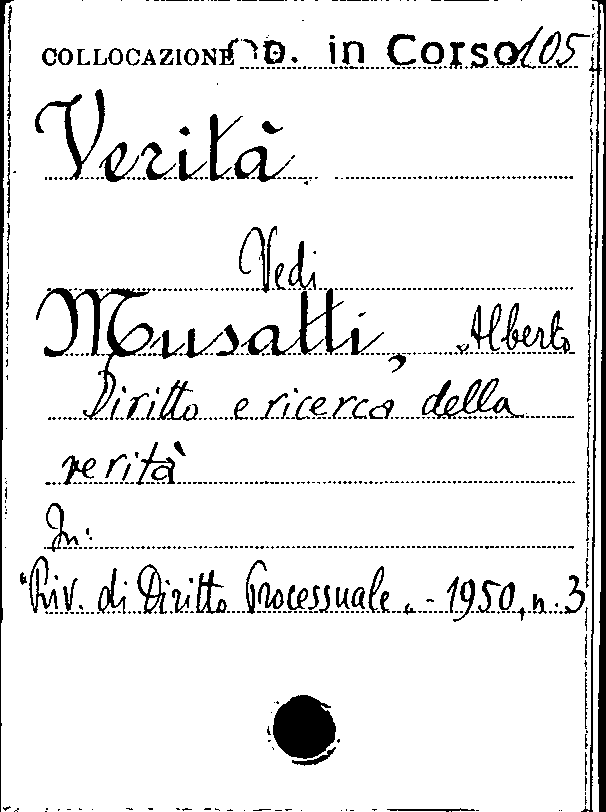 COLLOCAZIONE D. in Corso 105
Verità
Vedi
Musatti, Alberto
Diritto e ricerca della
verità
In:
"Riv. di Diritto Processuale„ - 1950, n. 3